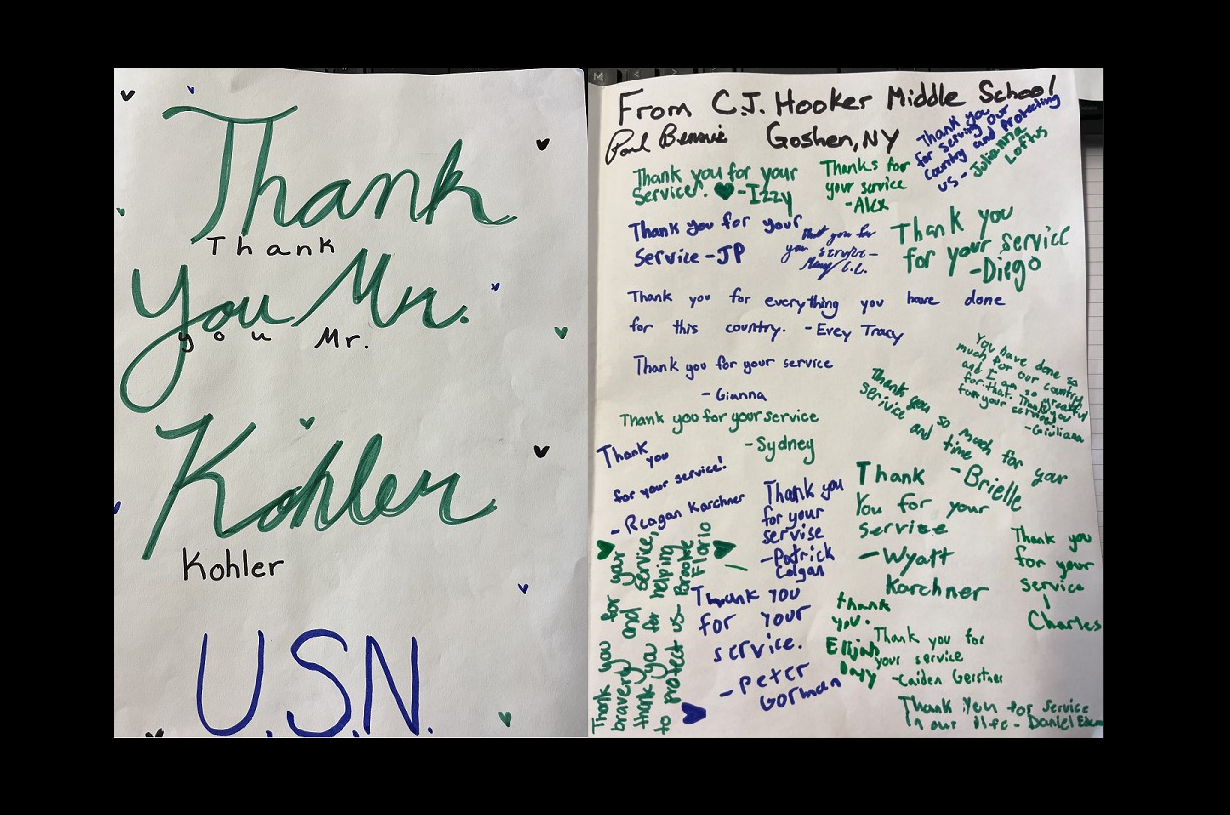 Thank
Thank
You Mr.
you Mr.
Kohler
Kohler
U.S.N.
From C.J. Hooker Middle School
Paul Bennie Goshen, NY
Thank you
for serving our
country and protecting
us - Julianna
Loftus
Thank you for your
Service. - Izzy
Thanks for
your service
-Alex
Thank you for your
Service -JP
for
your service -
Thank you
for your service
-Diego
Thank you for everything you have done
for this country. - Evey Tracy
Thank you for your service
- Gianna
You have done so
much for our country
and I am so
for that. Thank you
your
-Giuliana
Thank you so much for your
service and time
-Brielle
Thank you for your service
-Sydney
Thank
you
for your service!
- Reagan Karchner
Thank you
for your
servise
-Patrick
Colgan
Thank
You for your
service
-Wyatt
Karchner
Thank you
for your
service
Charles
Thank you for your
bravery and service,
thank you for helping
to protect us- Brooke
Florio
Thank you
for your
service.
- Peter
Gorman
thank
you.
Elijah
Thank you for
your service
-Caiden Gerstner
Thank you for service
in our - Daniel